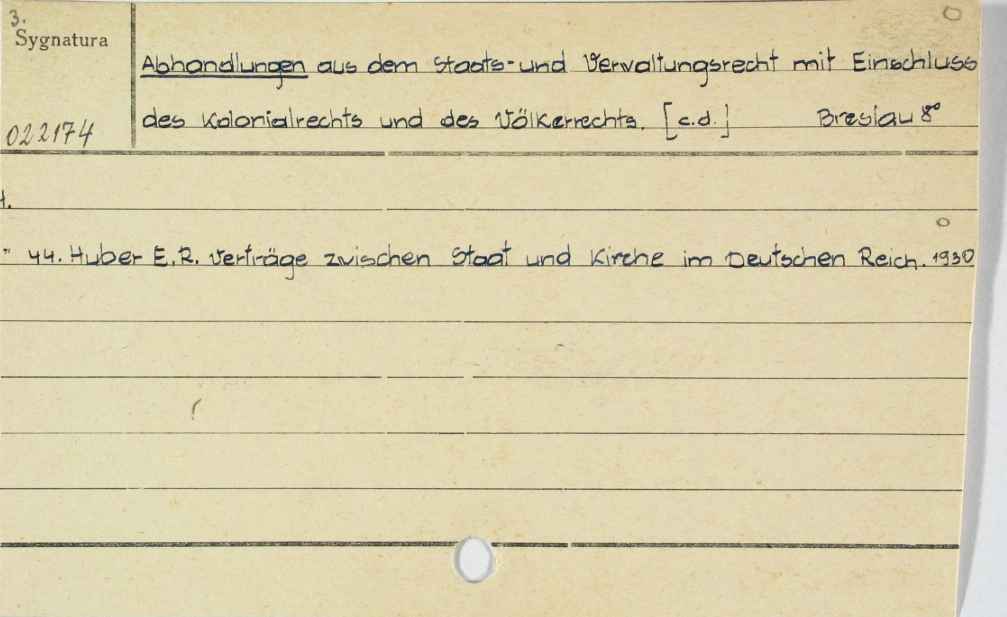 3.
Sygnatura
Abhandlungen aus dem Staats-und Verwaltungsrecht mit Einschluss
022174
des Kolonialrechts und des Völkerrechts. [c.d.] Breslau 8°
t.
" 44. Huber E.R. Verträge zwischen Staat und Kirche im Deutschen Reich. 1930